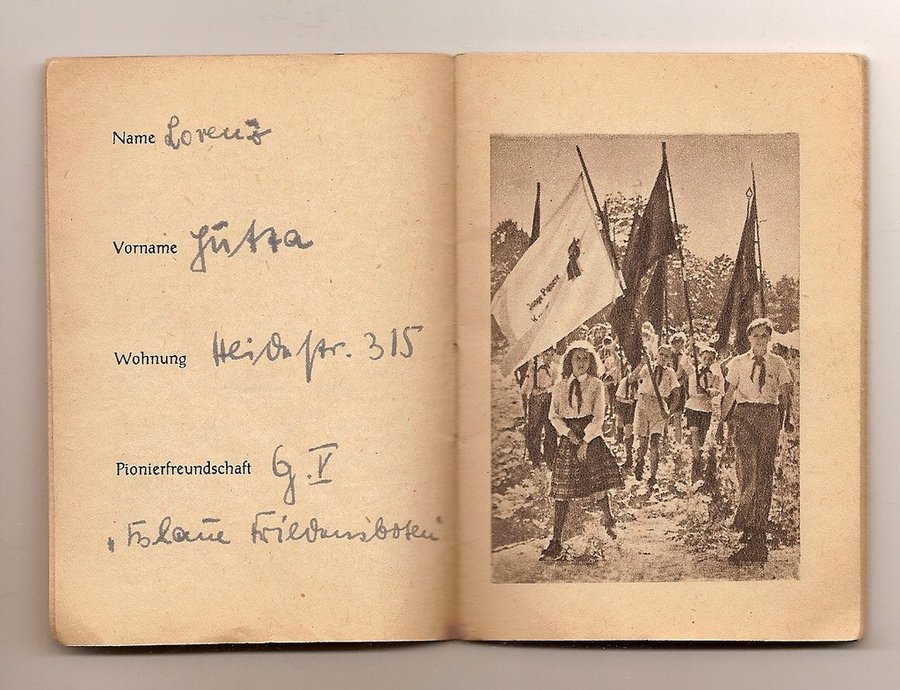 Name Lorenz
Vorname Jutta
Wohnung Heidestr. 315
Pionierfreundschaft G. V
„Blaue Friedensboten"
Junge Pioniere